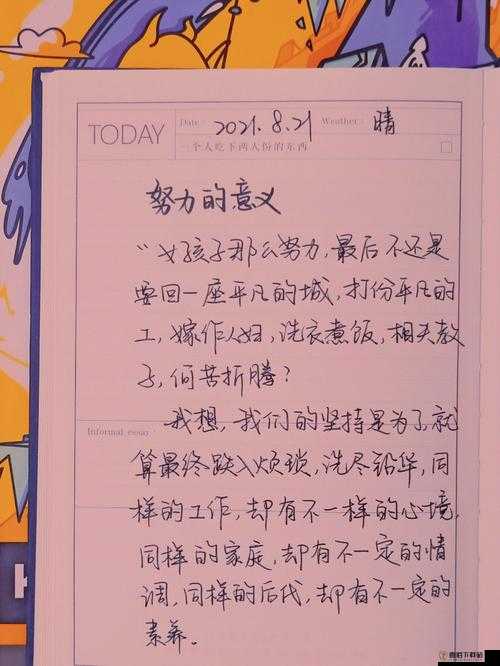 TODAY
Date: 2021.8.21 Weather: 晴
一个人吃下两人份的东西
努力的意义
“女孩子那么努力,最后不还是
要回一座平凡的城,打份平凡的
工,嫁作人妇,洗衣煮饭,相夫教
子,何苦折腾?
我想,我们的坚持是为了,就
Informal essay:
算最终跌入烦琐,洗尽铅华,同
样的工作,却有不一样的心境,
同样的家庭,却有不一定的情
调,同样的后代,却有不一定的
素养。